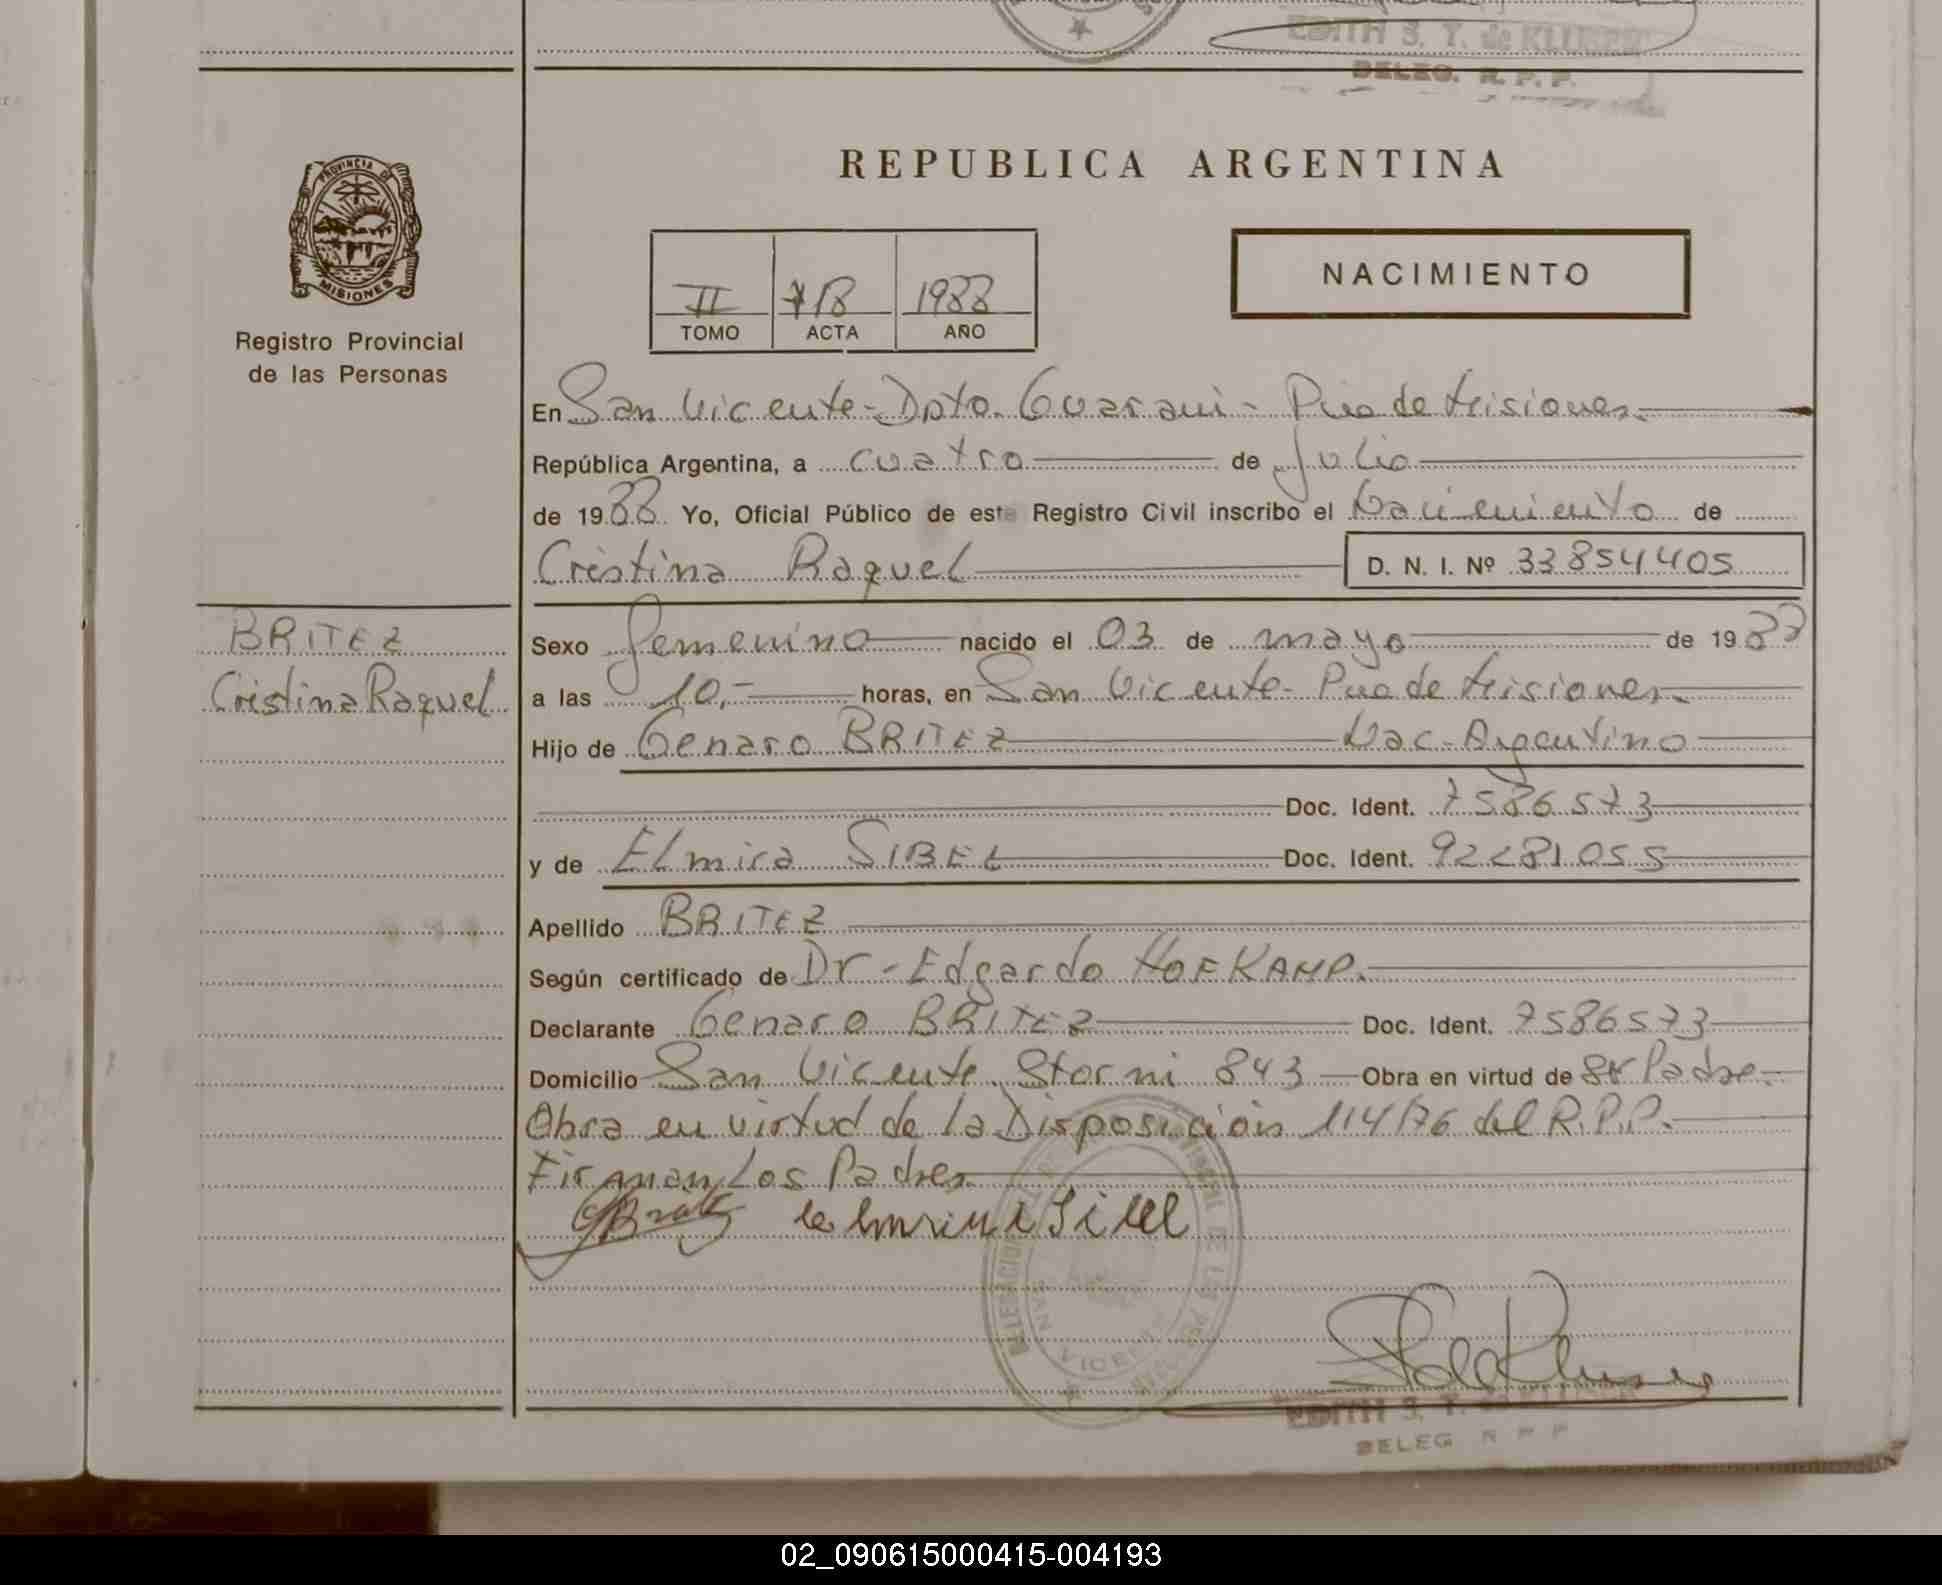 EDITH S. T. de KLUSER
DELEG. R. P. P.
PROVINCIA DE MISIONES
Registro Provincial
de las Personas
REPUBLICA ARGENTINA
II 718 1988
TOMO ACTA AÑO
NACIMIENTO
En San Vicente - Dpto. Guarani - Pcia de Misiones.
República Argentina, a cuatro de Julio
de 1988 Yo, Oficial Público de este Registro Civil inscribo el Nacimiento de
Cristina Raquel D. N. I. Nº 33854405
BRITEZ
Cristina Raquel
Sexo femenino nacido el 03 de mayo de 1988
a las 10,- horas, en San Vicente - Pcia de Misiones.
Hijo de Genaro BRITEZ Nac. Argentino
Doc. Ident. 7586573
y de Elmira SIBEL Doc. Ident. 92281055
Apellido BRITEZ
Según certificado de Dr - Edgardo HOFKAMP.
Declarante Genaro BRITEZ Doc. Ident. 7586573
Domicilio San Vicente Storni 843 Obra en virtud de Ser Padre.-
Obra en virtud de la Disposición 114/76 del R.P.P.
Firman Los Padres.
SAN VICENTE
EDITH S. T. de
DELEG R P P
02_090615000415-004193